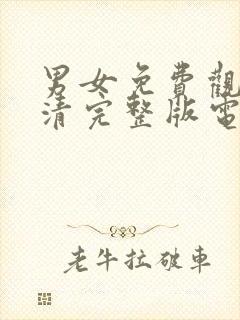 男女免費觀
清完整版電
老牛拉破車